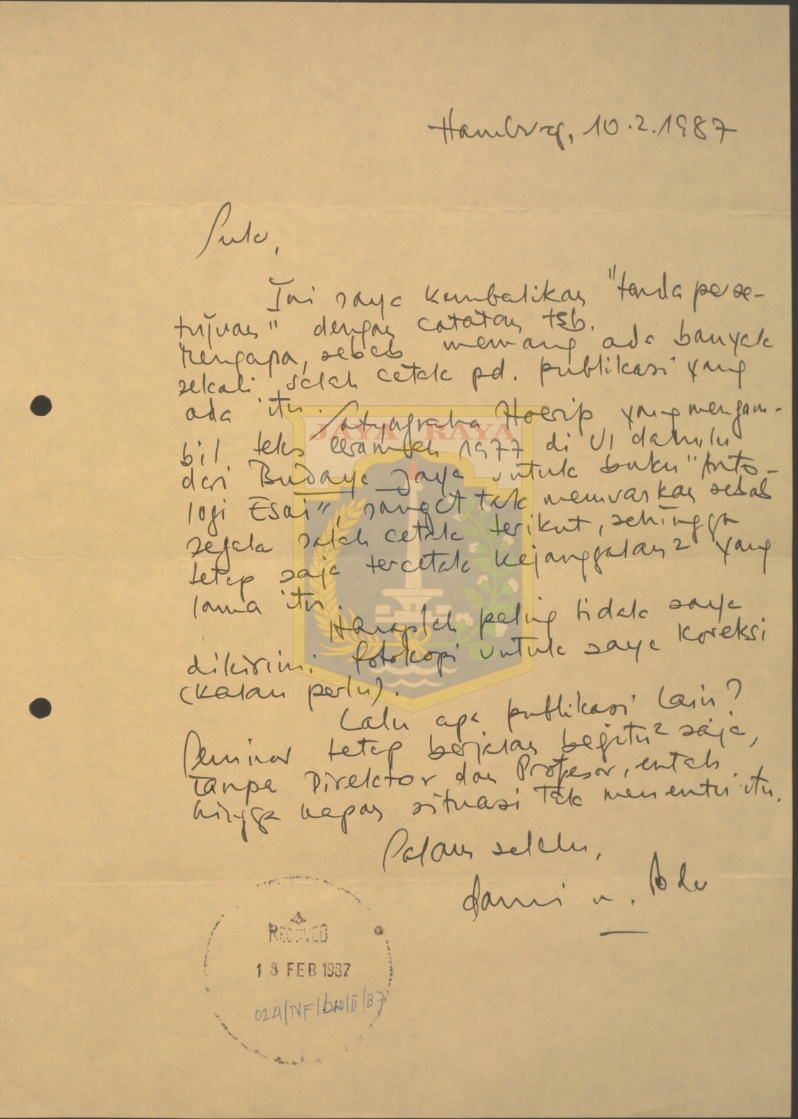 Hamburg, 10.2.1987
Ini saya kembalikan "tanda perse-
tujuan" dengan catatan tsb.
Mengapa, sebab memang ada banyak
sekali salah cetak pd. publikasi yang
ada itu. Satyagraha Hoerip yang mengam-
bil teks ceramah 1977 di UI dahulu
dari Budaya Jaya untuk buku "Anto-
logi Esai", sangat tak memuaskan sebab
segala salah cetak terikut, sehingga
tetap saja tercetak kejanggalan2 yang
lama itu.
Haraplah paling tidak saya
dikirimi fotokopi untuk saya koreksi
(kalau perlu).
Lalu apa publikasi lain?
Seminar tetap berjalan begitu2 saja,
tanpa Direktor dan Profesor, entah
hingga kapan situasi tak menentu itu.
Salam selalu,
JAYA RAYA
RECEIVED
18 FEB 1987